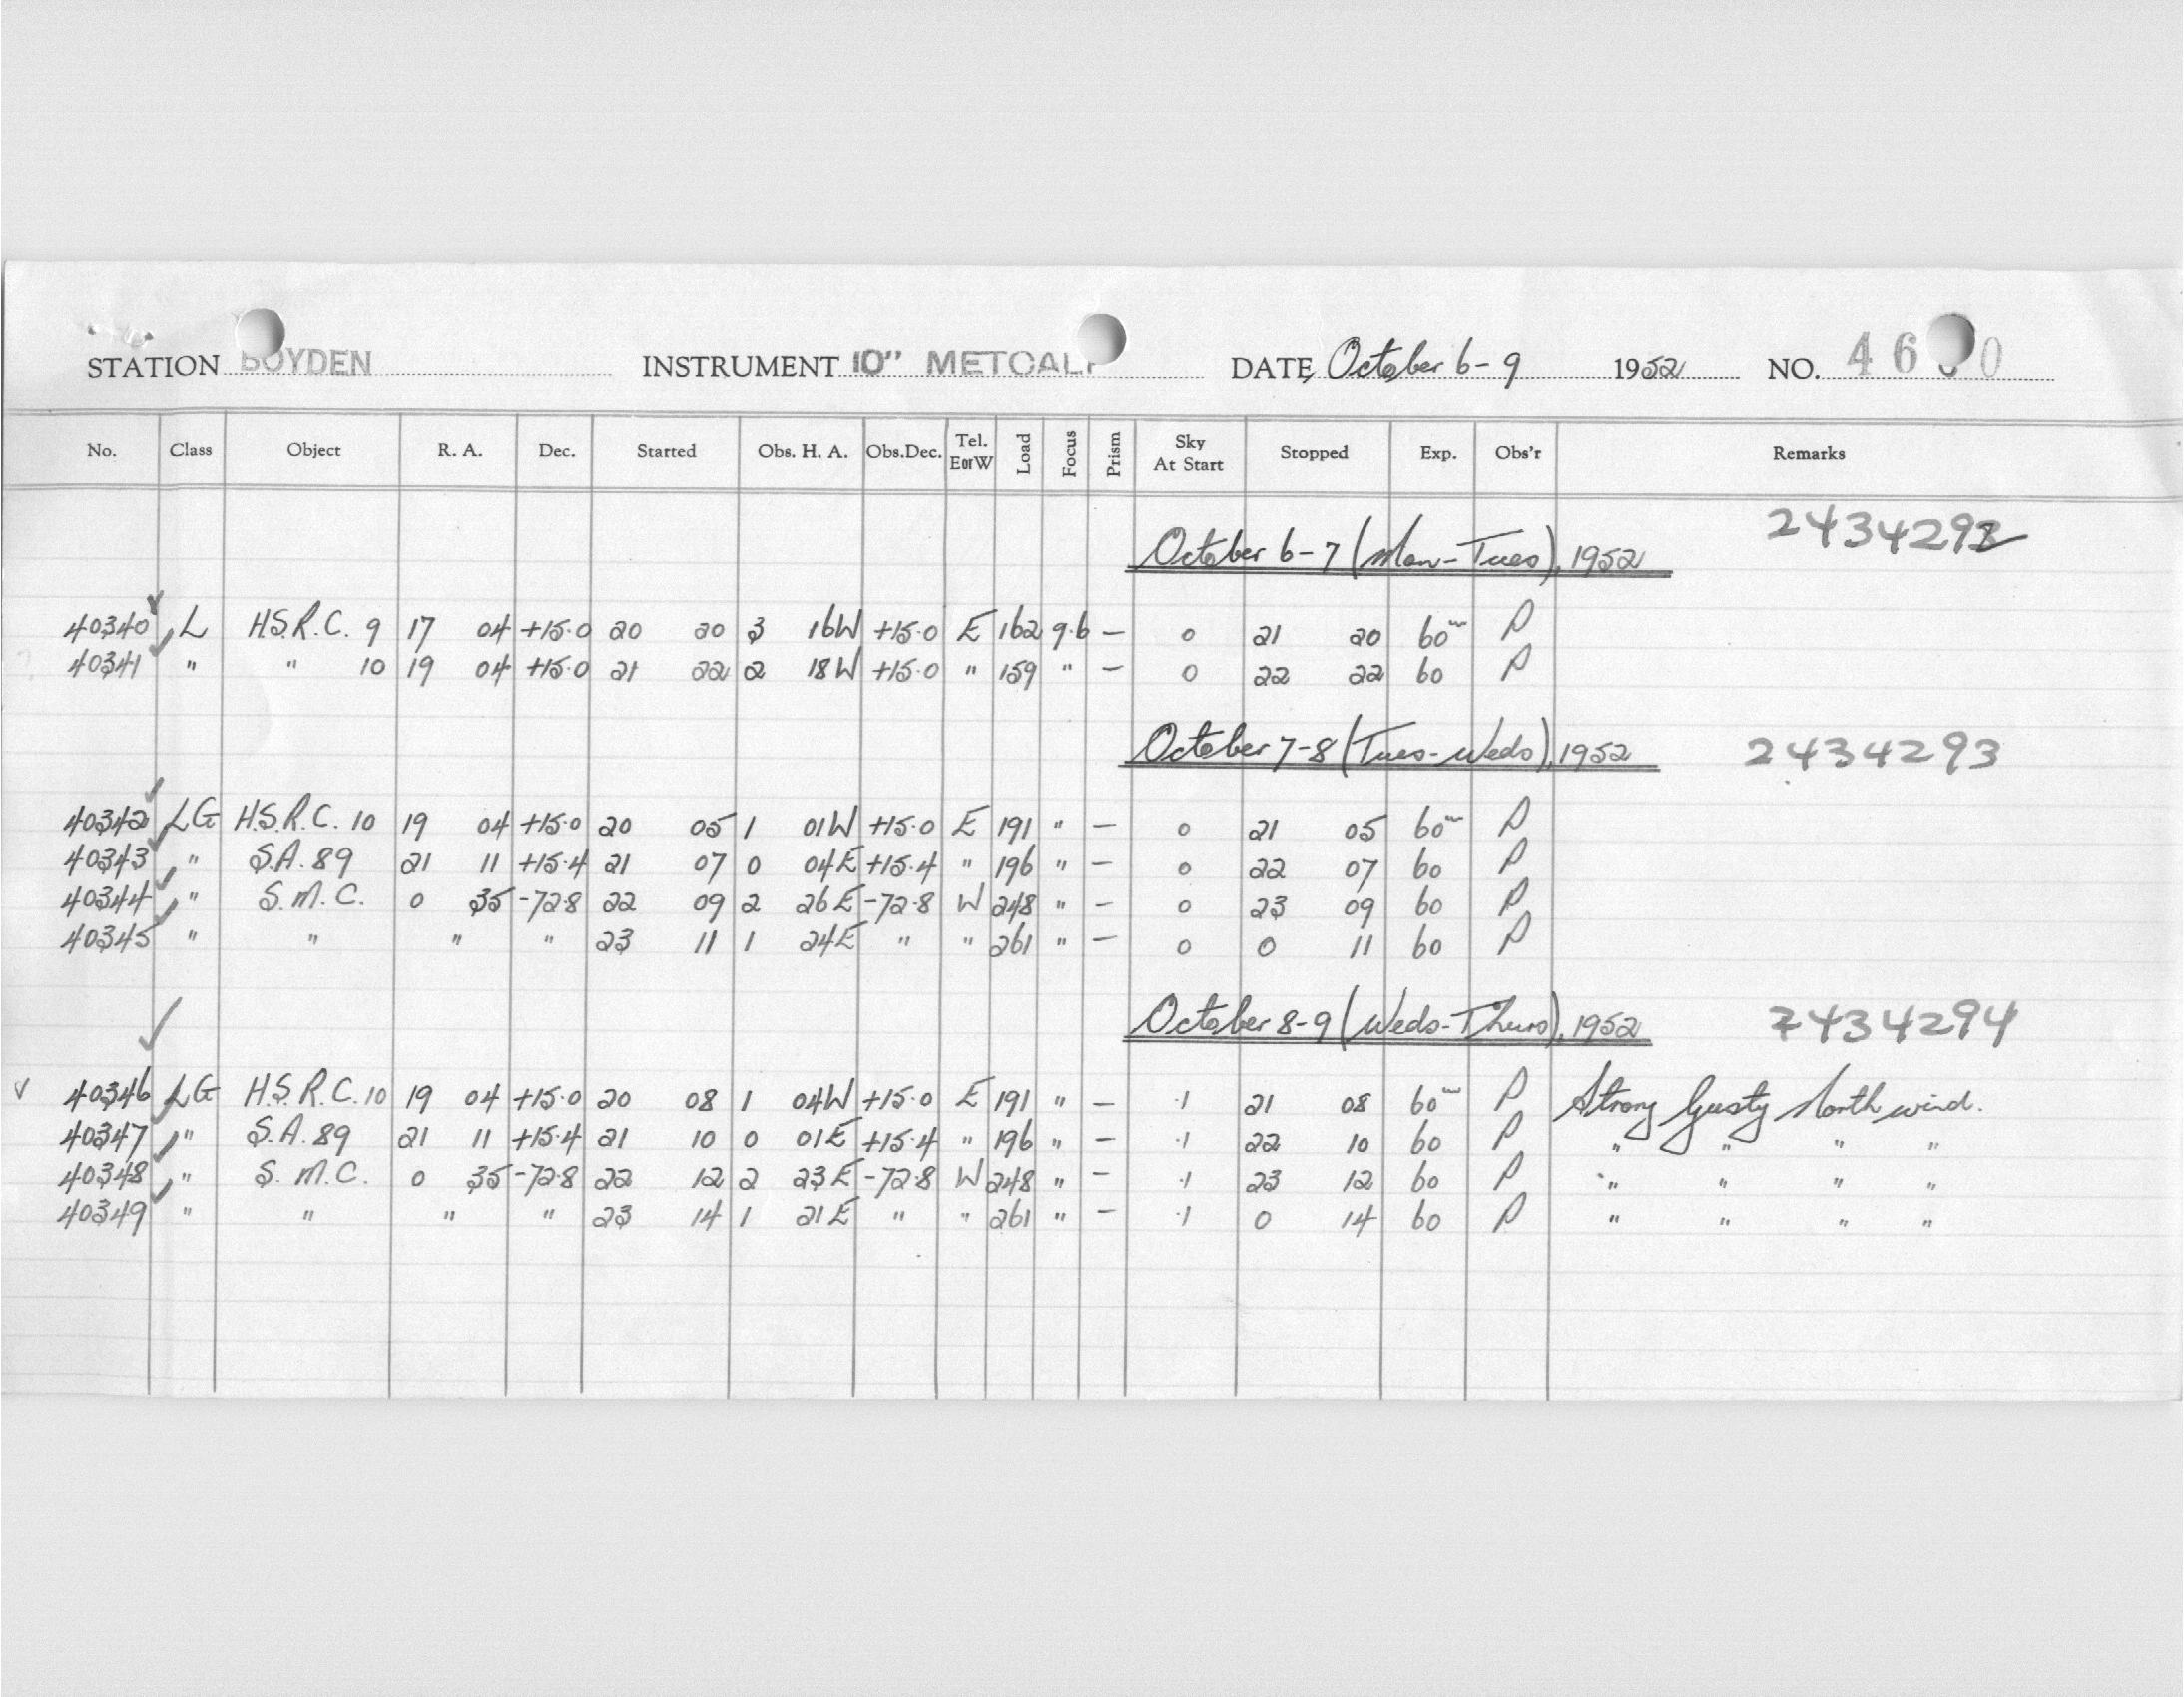 STATION BOYDEN INSTRUMENT 10" METCALF DATE October 6-9 1952 NO. 46 0
No. Class Object R. A. Dec. Started Obs. H. A. Obs.Dec. Tel. EorW Load Focus Prism Sky At Start Stopped Exp. Obs'r Remarks
October 6-7 (Mon-Tues), 1952 2434292
40340 L H.S.R.C. 9 17 04 +15.0 20 20 3 16W +15.0 E 162 9.6 - 0 21 20 60m P
40341 " " 10 19 04 +15.0 21 22 2 18W +15.0 " 159 " - 0 22 22 60 P
October 7-8 (Tues-Weds), 1952 2434293
40342 LG H.S.R.C. 10 19 04 +15.0 20 05 1 01W +15.0 E 191 " - 0 21 05 60m P
40343 " S.A. 89 21 11 +15.4 21 07 0 04E +15.4 " 196 " - 0 22 07 60 P
40344 " S.M.C. 0 35 -72.8 22 09 2 26E -72.8 W 248 " - 0 23 09 60 P
40345 " " " " 23 11 1 24E " " 261 " - 0 0 11 60 P
October 8-9 (Weds-Thurs), 1952 2434294
40346 LG H.S.R.C. 10 19 04 +15.0 20 08 1 04W +15.0 E 191 " - .1 21 08 60m P Strong Gusty North wind.
40347 " S.A. 89 21 11 +15.4 21 10 0 01E +15.4 " 196 " - .1 22 10 60 P " " " "
40348 " S.M.C. 0 35 -72.8 22 12 2 23E -72.8 W 248 " - .1 23 12 60 P " " " "
40349 " " " " 23 14 1 21E " " 261 " - .1 0 14 60 P " " " "